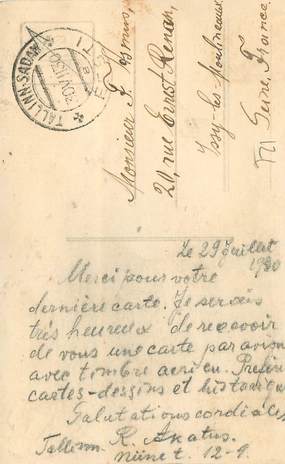 TALLINN-SADAM
EESTI
Monsieur F. Asmus,
20, rue Ernst Renan,
Issy-les-Moulineaux
Seine, France.
Le 29 Juillet
1930
Merci pour votre
dernière carte. Je serais
très heureux de recevoir
de vous une carte par avion
avec timbre aerien.
cartes-dessins et
Salutations cordiales
Tallinn. R.
12-9.